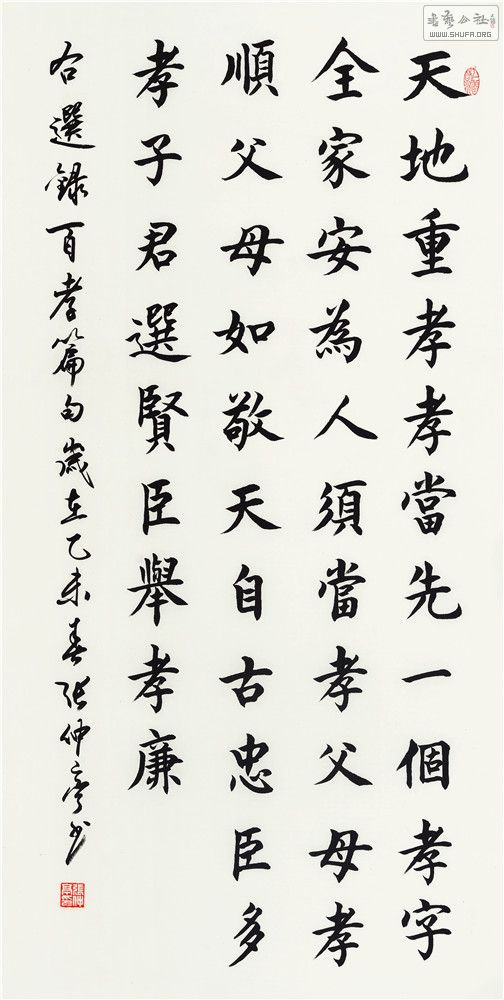 天地重孝孝當先一個孝字
全家安為人須當孝父母孝
順父母如敬天自古忠臣多
孝子君選賢臣舉孝廉
右選錄百孝篇句歲在乙未春張仲亭书
書艺公社
WWW.SHUFA.ORG